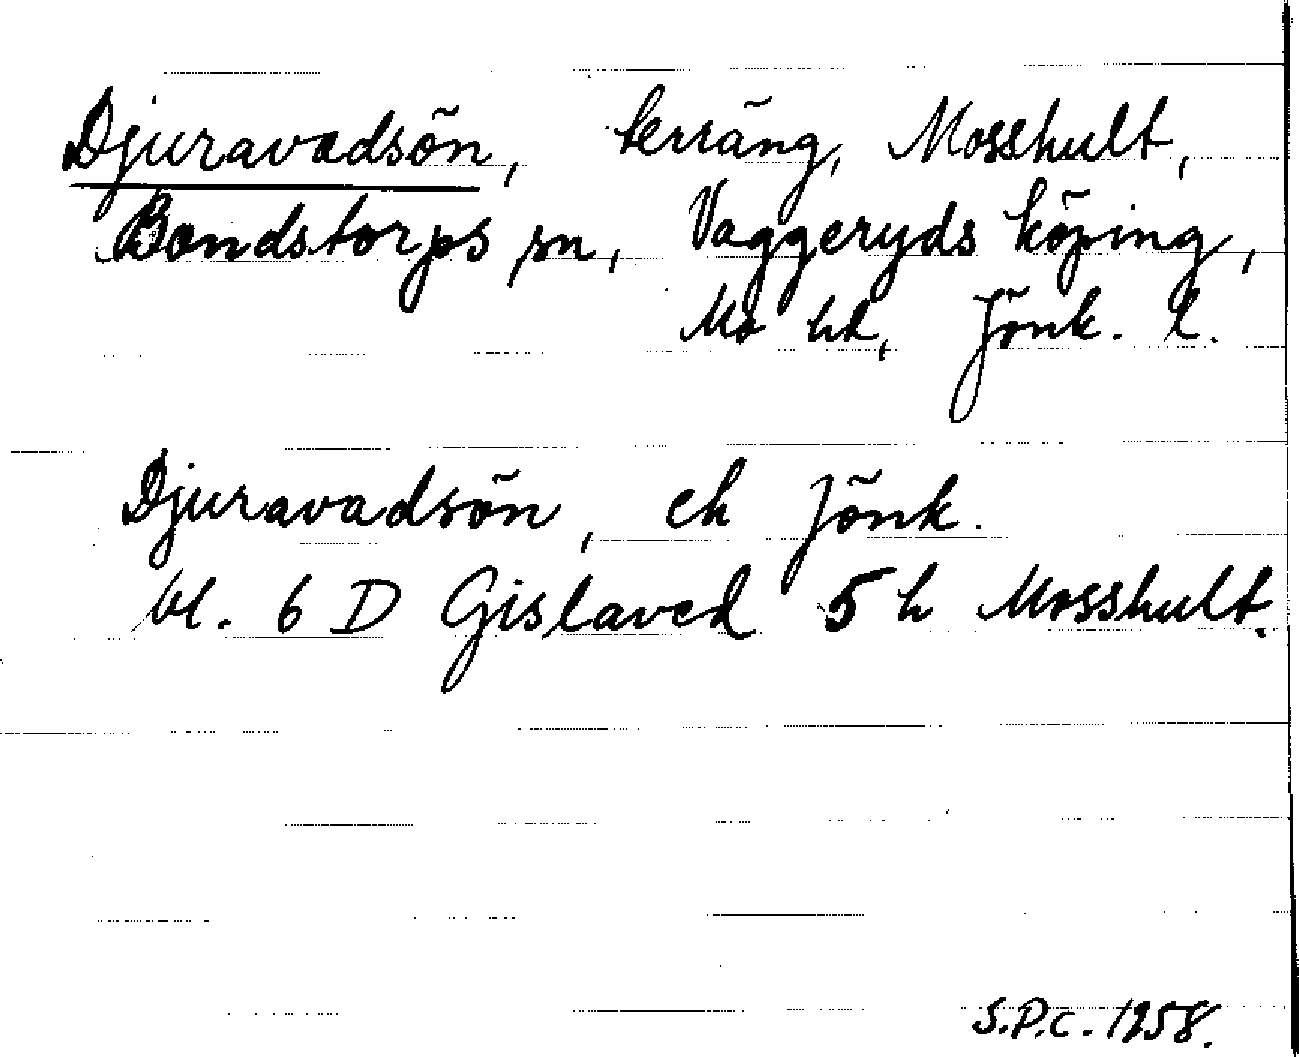 Djuravadsön, terräng, Mosshult,
Bondstorps sn, Vaggeryds köping,
Mo hd, Jönk. l.
Djuravadsön, ek Jönk.
bl. 6 D Gislaved 5 h Mosshult.
S.P.C. 1958.